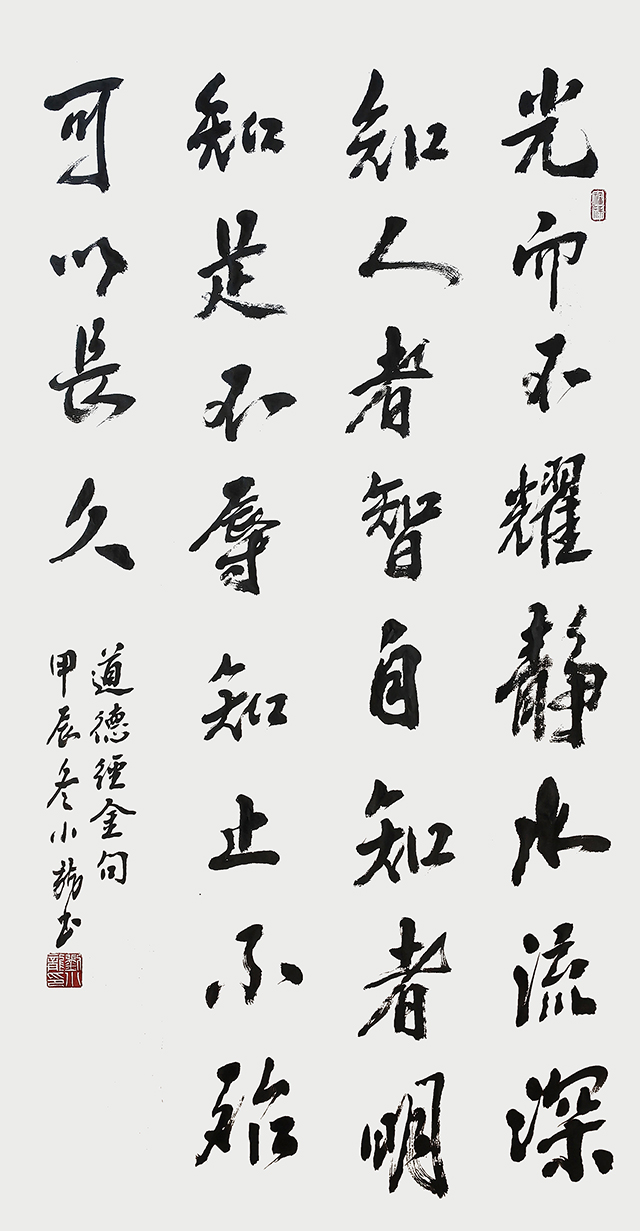 光而不耀静水流深
知人者智自知者明
知足不辱知止不殆
可以长久
道德經金句
甲辰冬小龍书